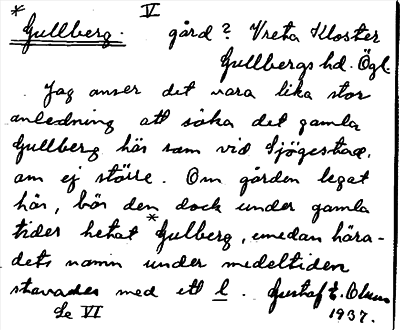 V
* Gullberg. gård? Vreta Kloster
Gullbergs hd. Ögl.
Jag anser det vara lika stor
anledning att söka det gamla
Gullberg här som vid Sjögestad,
om ej större. Om gården legat
här, bör den dock under gamla
tider hetat *Gulberg, emedan hära-
dets namn under medeltiden
stavades med ett l. Gustaf E. Olsson
Se VI 1937.